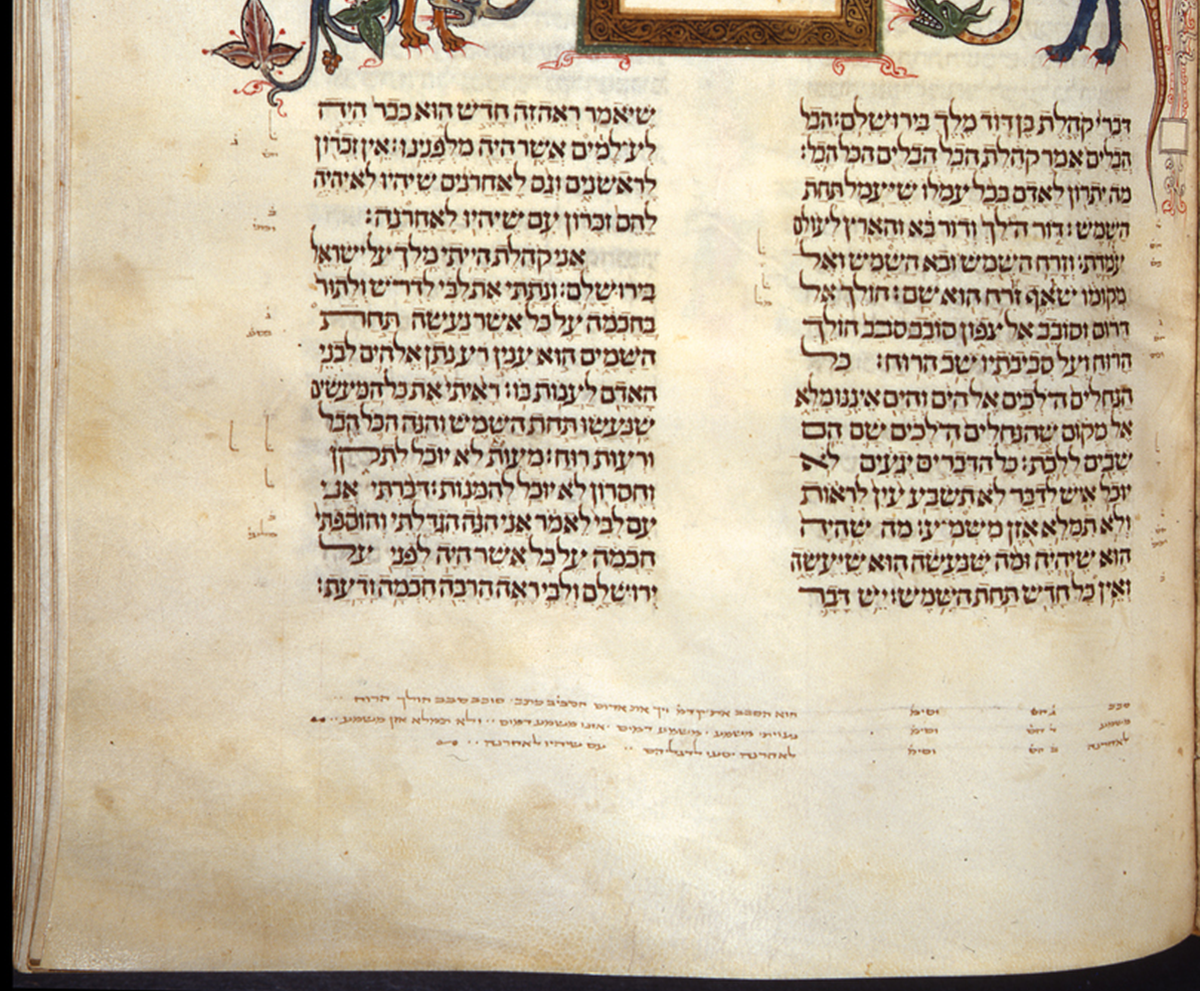 דברי קהלת בן דוד מלך בירושלם: הבל
הבלים אמר קהלת הבל הבלים הכל הבל:
מה יתרון לאדם בכל עמלו שיעמל תחת
השמש: דור הלך ודור בא והארץ לעולם
עמדת: וזרח השמש ובא השמש ואל
מקומו שואף זרח הוא שם: הולך אל
דרום וסובב אל צפון סובב סבב הולך
הרוח ועל סביבתיו שב הרוח: כל
הנחלים הלכים אל הים והים איננו מלא
אל מקום שהנחלים הלכים שם הם
שבים ללכת: כל הדברים יגעים לא
יוכל איש לדבר לא תשבע עין לראות
ולא תמלא אזן משמע: מה שהיה
הוא שיהיה ומה שנעשה הוא שיעשה
ואין כל חדש תחת השמש: יש דבר
שיאמר ראה זה חדש הוא כבר היה
לעלמים אשר היה מלפנינו: אין זכרון
לראשנים וגם לאחרנים שיהיו לא יהיה
להם זכרון עם שיהיו לאחרנה:
אני קהלת הייתי מלך על ישראל
בירושלם: ונתתי את לבי לדרש ולתור
בחכמה על כל אשר נעשה תחת
השמים הוא ענין רע נתן אלהים לבני
האדם לענות בו: ראיתי את כל המעשים
שנעשו תחת השמש והנה הכל הבל
ורעות רוח: מעות לא יוכל לתקן
וחסרון לא יוכל להמנות: דברתי אני
עם לבי לאמר אני הנה הגדלתי והוספתי
חכמה על כל אשר היה לפני על
ירושלם ולבי ראה הרבה חכמה ודעת:
סבב וסימ הוא הסבב סובב סבב הולך הרוח
משמע וסימ משמע ולא תמלא אזן משמע
לאחרנה וסימ לאחרנה יסעו לדגליהם עם שיהיו לאחרנה